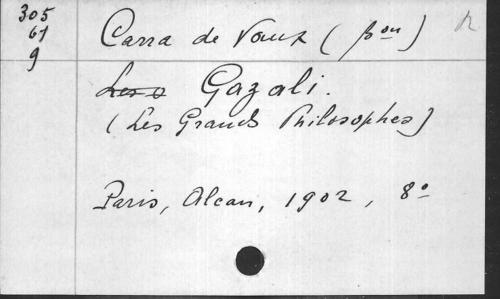 305
61
9
Carra de Vaux (Bon)
Les Gazali.
(Les Grands Philosophes)
Paris, Alcan, 1902, 8o